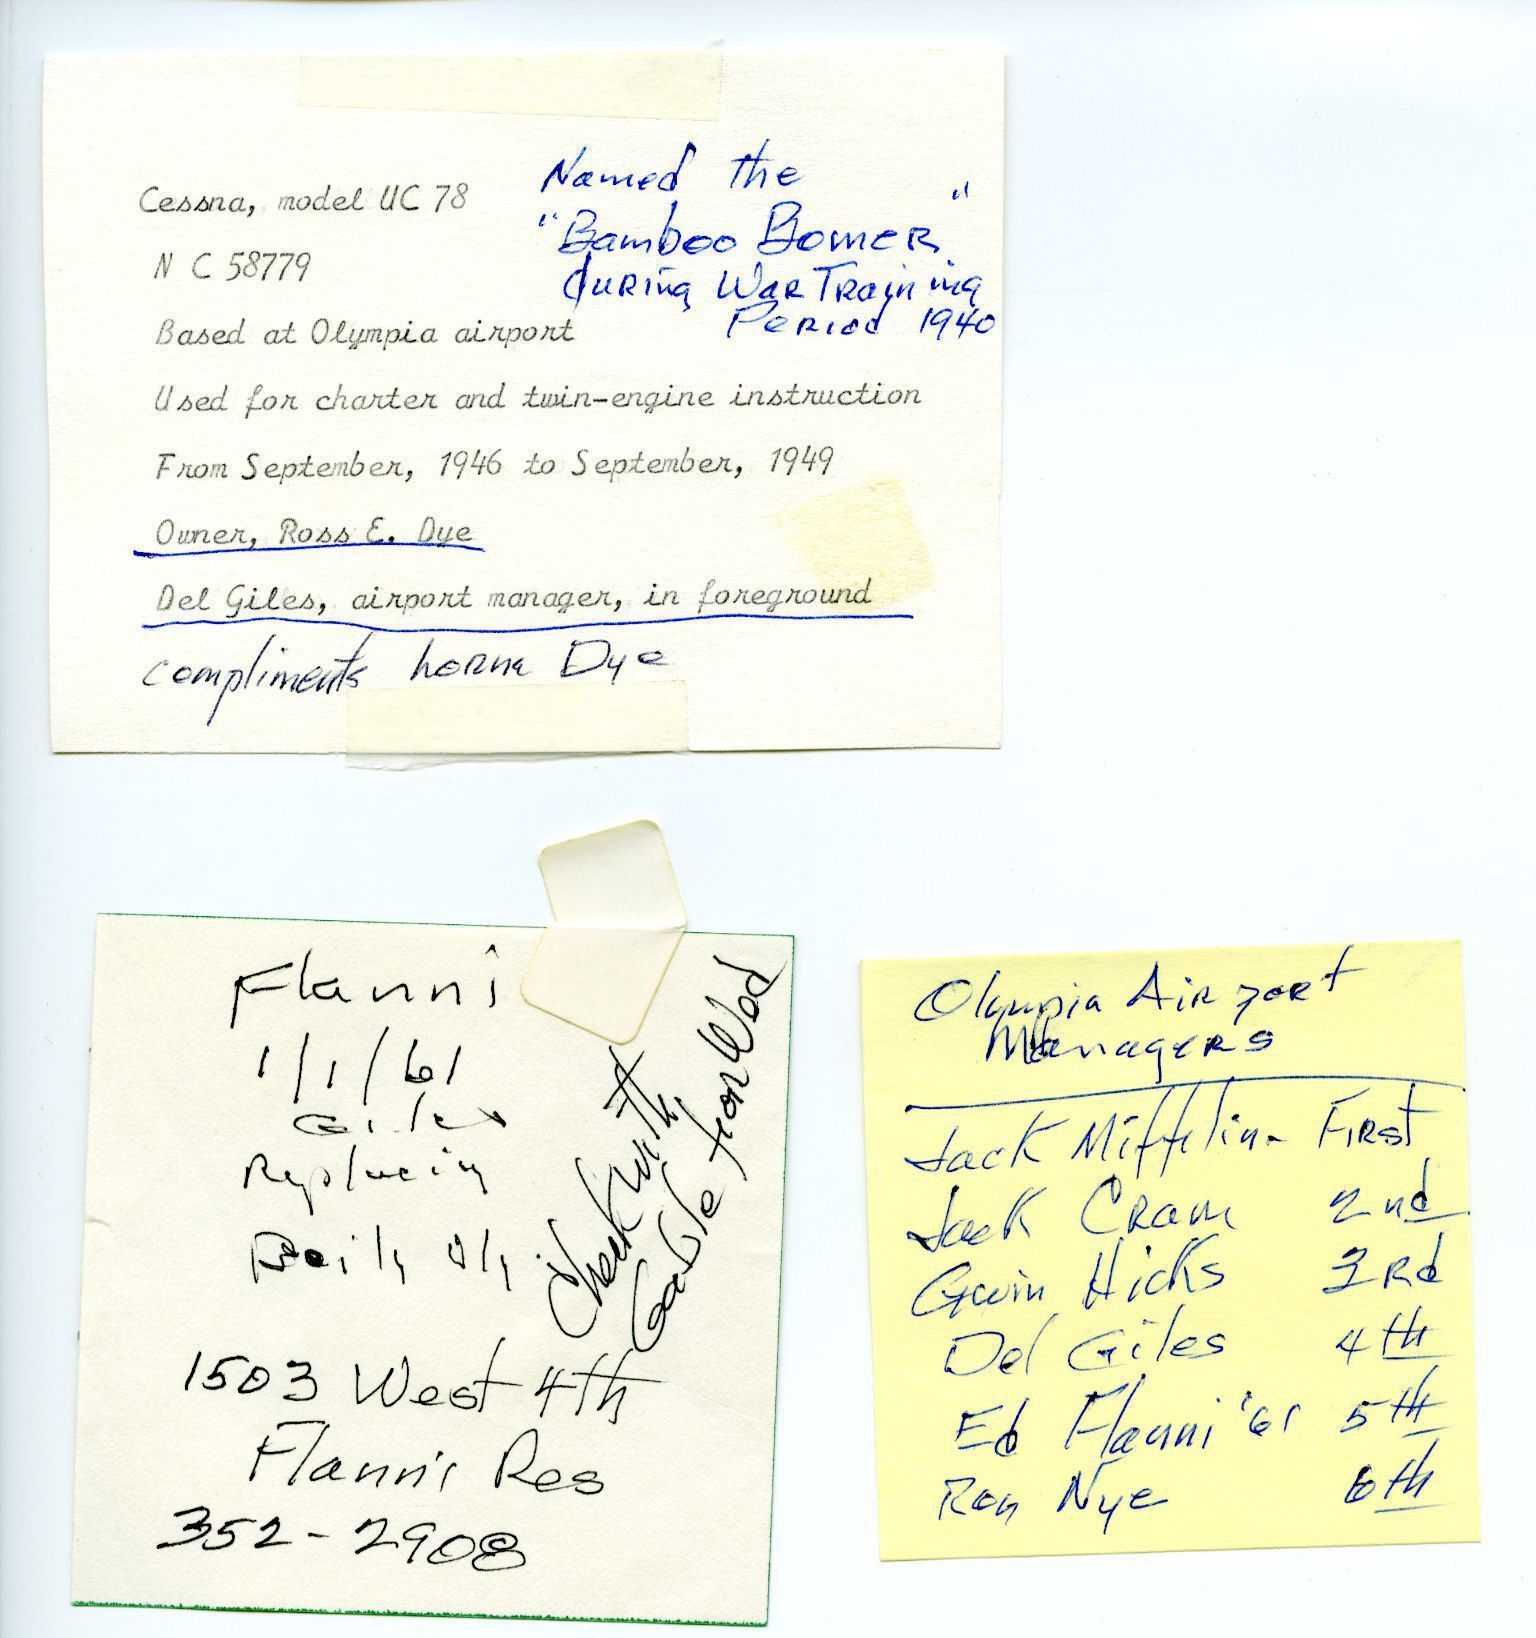 Cessna, model UC 78
N C 58779
Based at Olympia airport
Used for charter and twin-engine instruction
From September, 1946 to September, 1949
Owner, Ross E. Dye
Del Giles, airport manager, in foreground
compliments Lorna Dye
Named the
"Bamboo Bomer"
during War Training
Period 1940
Flanni
1/1/61
Giles
Replacing
Daily Oly
Check with
Gable from Wed
1503 West 4th
Flanni Res
352-2908
Olympia Airport
Managers
Jack Mifflin - First
Jack Cram 2nd
Gwin Hicks 3rd
Del Giles 4th
Ed Flanni '61 5th
Ron Nye 6th